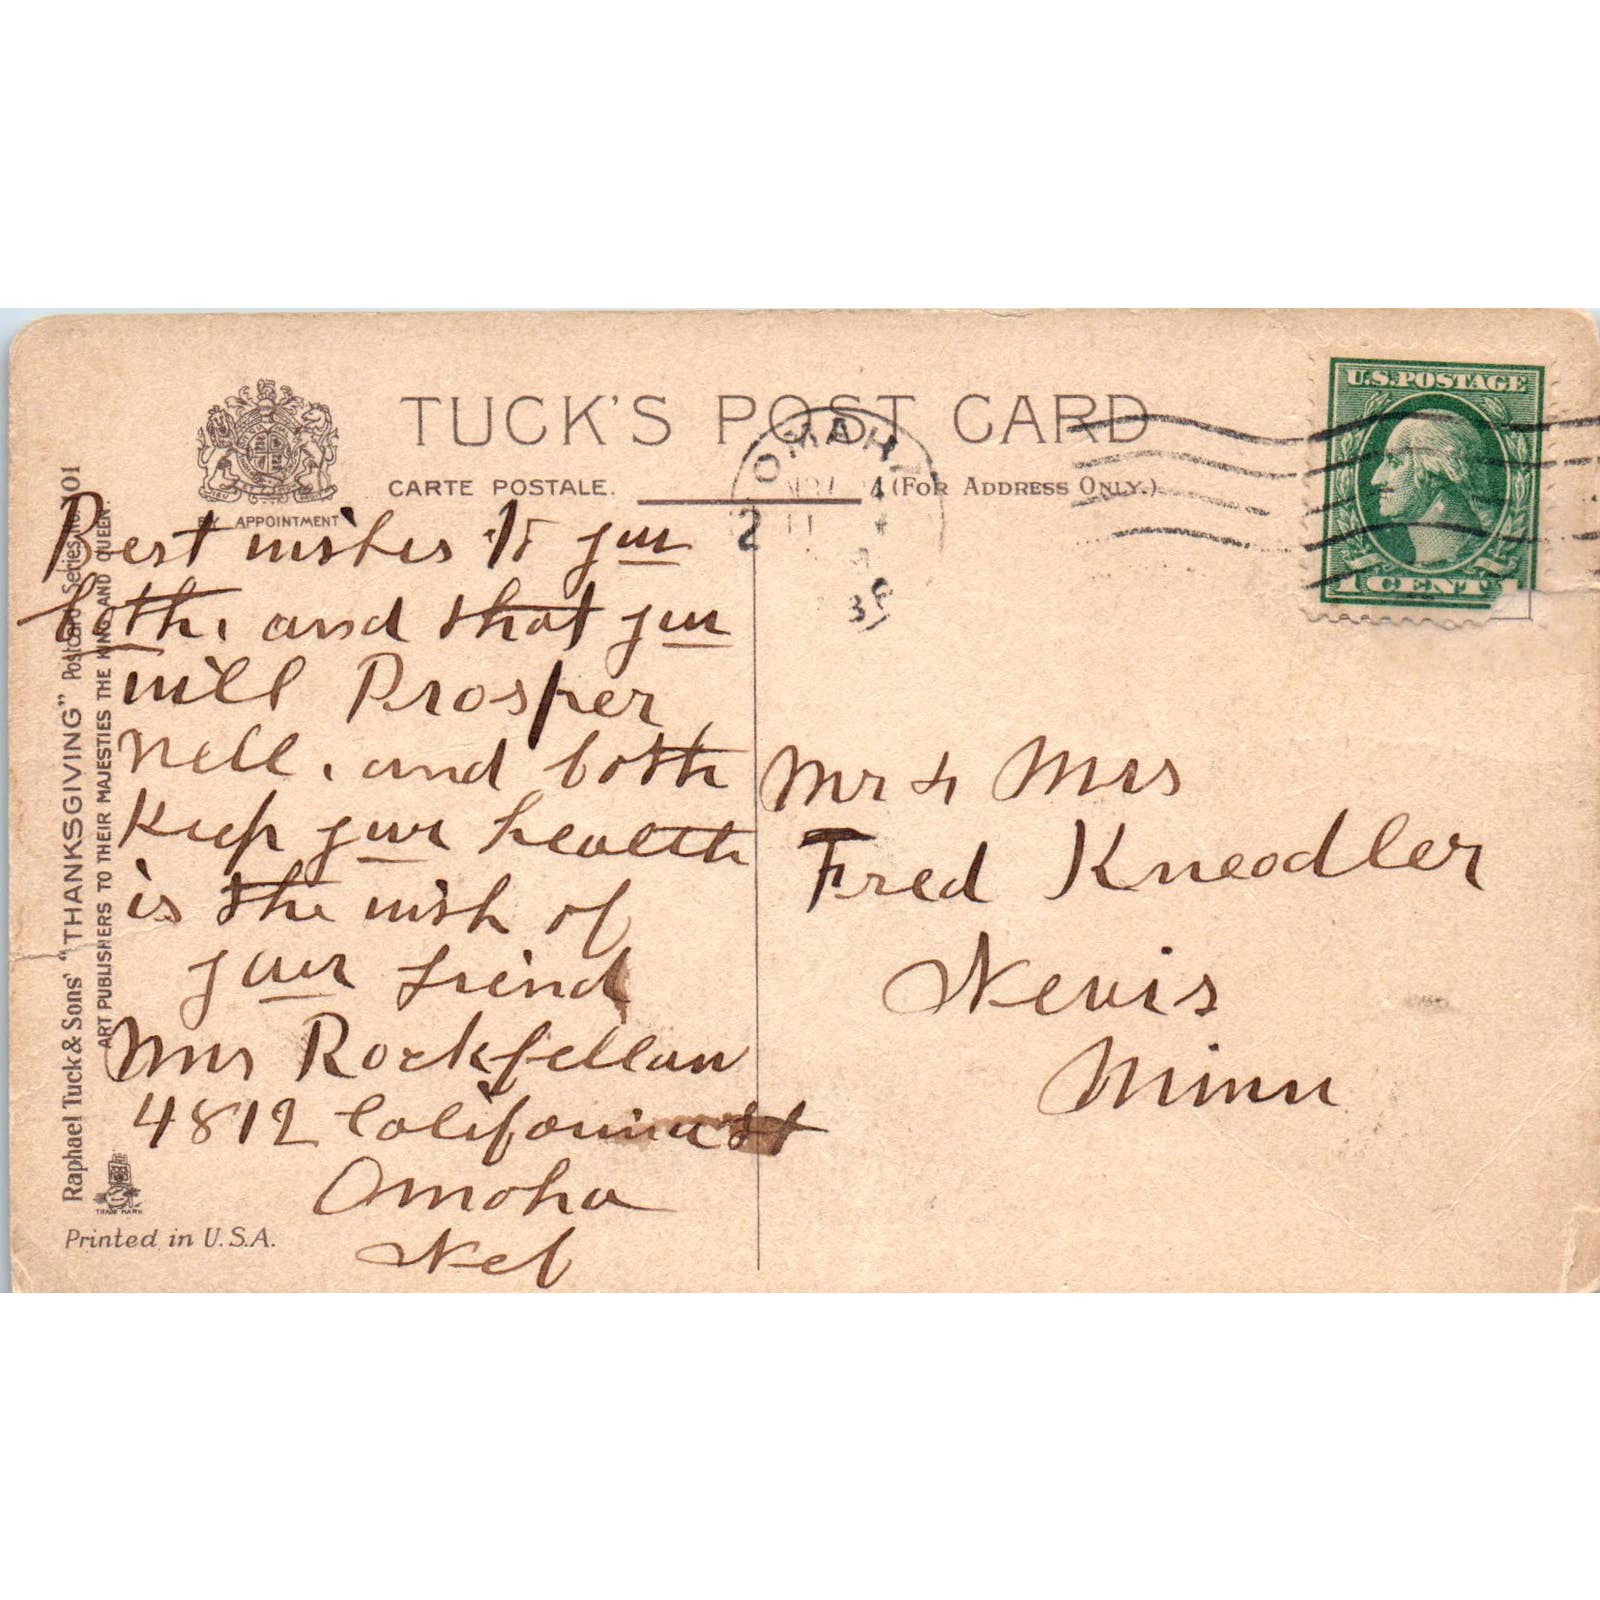 TUCK'S POST CARD
CARTE POSTALE.
(FOR ADDRESS ONLY.)
BY APPOINTMENT
OMAHA
U.S. POSTAGE
1 CENT 1
Best wishes to you
both, and that you
will Prosper
well, and both
Keep your health
is the wish of
your friend
Mrs Rockfellaw
4812 California St
Omaha
Neb
Mr & Mrs
Fred Kneodler
Nevis
Minn
Raphael Tuck & Sons' "THANKSGIVING" Postcard Series No. 101
ART PUBLISHERS TO THEIR MAJESTIES THE KING AND QUEEN.
TRADE MARK
Printed in U.S.A.